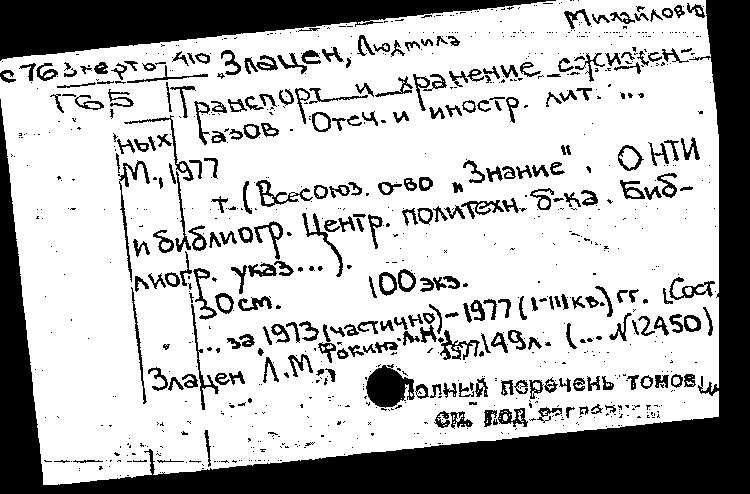 Михайловна
с76 Энерго-410 Злацен, Людмила
Т65 Транспорт и хранение сжижен-
ных газов. Отеч. и иностр. лит. ...
М., 1977
т. (Всесоюз. о-во „Знание". ОНТИ
и библиогр. Центр. политехн. б-ка. Биб-
лиогр. указ...).
30 см. 100 экз.
... за 1973 (частично) – 1977 (I-III кв.) гг. [Сост.
Злацен Л.М., Фокина Л.Н.] 1977. 149 л. (... N 12450)
Полный перечень томов
см. под заглавием